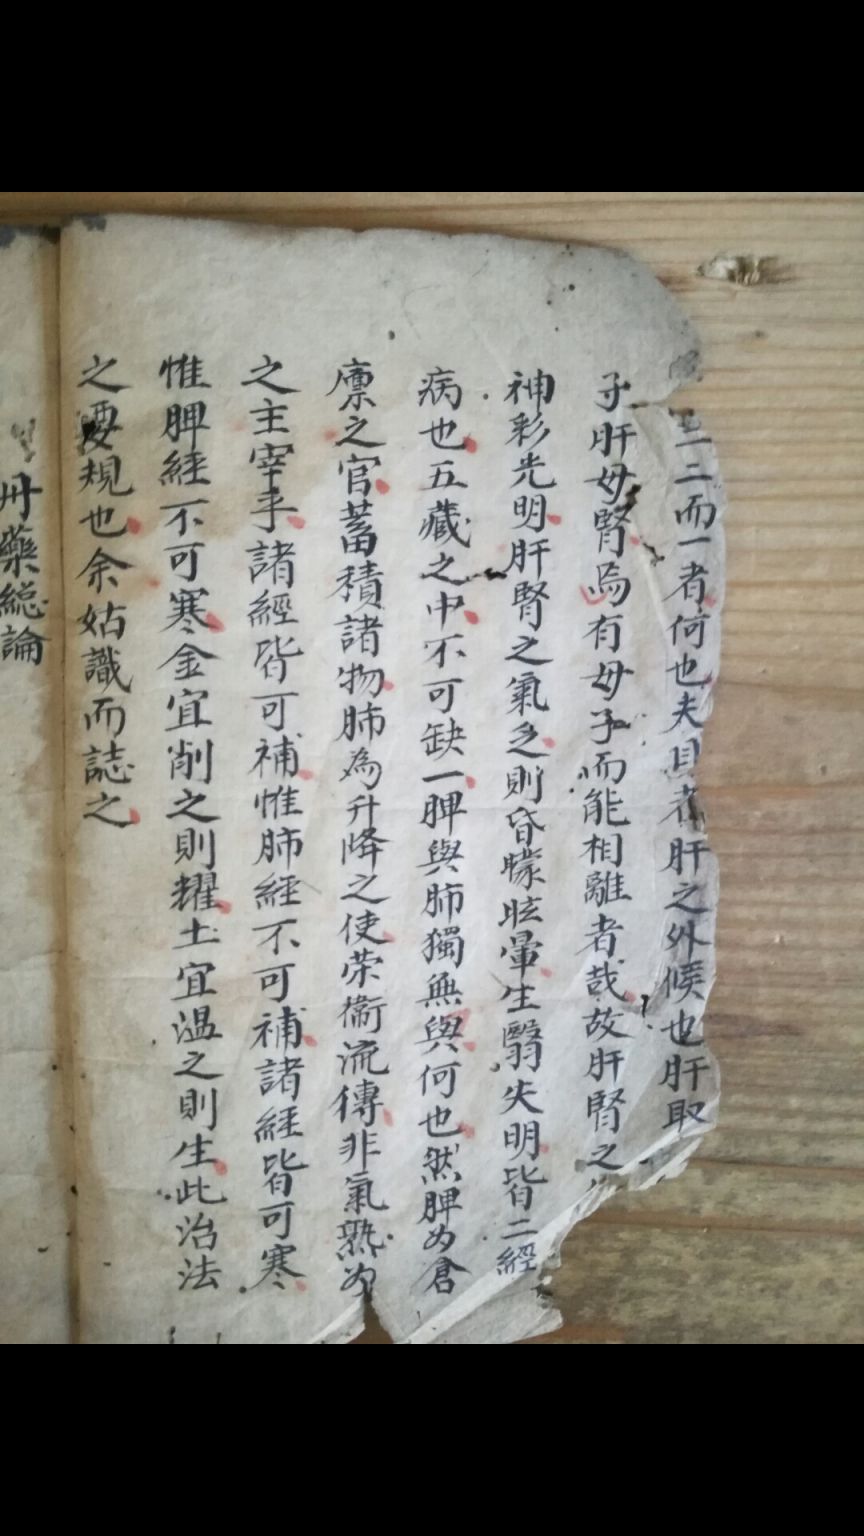 二而一者何也夫目者肝之外候也肝取
子肝母腎焉有母子而能相離者哉故肝腎之
神彩光明肝腎之氣乏則昏矇眩暈生翳失明皆二經
病也五藏之中不可缺一脾與肺獨無與何也然脾为倉
廪之官蓄積諸物肺為升降之使荣衞流傳非氣熟为
之主宰乎諸經皆可補惟肺經不可補諸經皆可寒
惟脾經不可寒金宜削之則耀土宜温之則生此治法
之要規也余姑識而誌之
藥総論